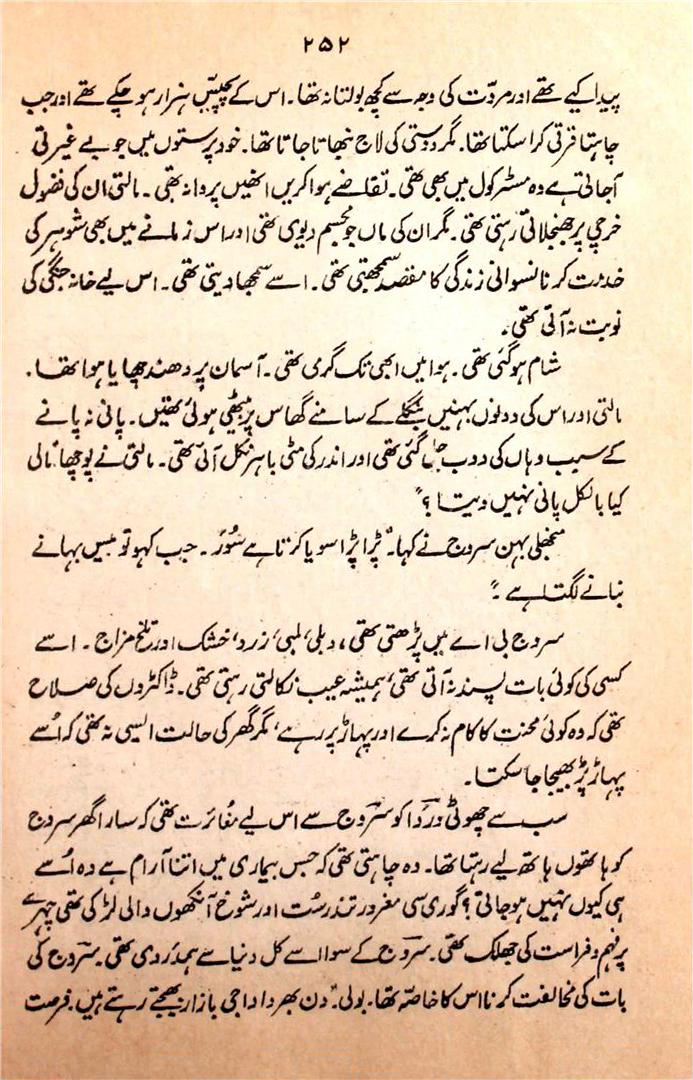 ۲۵۲
پیدا کیے تھے اور مروّت کی وجہ سے کچھ بولتا نہ تھا۔ اس کے پچیس ہزار ہو چکے تھے اور جب
چاہتا قرقی کرا سکتا تھا۔ مگر دوستی کی لاج نبھاتا جاتا تھا۔ خود پرستوں میں جو بے غیرتی
آجاتی ہے وہ مسٹر کول میں بھی تھی۔ تقاضے ہوا کریں انھیں پروا نہ تھی۔ مالتی ان کی فضول
خرچی پر جھنجلاتی رہتی تھی۔ مگر ان کی ماں جو مجسم دیوی تھی اور اس زمانے میں بھی شوہر کی
خدمت کرنا نسوانی زندگی کا مقصد سمجھتی تھی۔ اسے سمجھا دیتی تھی۔ اس لیے خانہ جنگی کی
نوبت نہ آتی تھی۔
شام ہوگئی تھی۔ ہوا میں ابھی تک گرمی تھی۔ آسمان پر دھند چھایا ہوا تھا۔
مالتی اور اس کی دونوں بہنیں بنگلے کے سامنے گھاس پر بیٹھی ہوئی تھیں۔ پانی نہ پانے
کے سبب وہاں کی دوب جل گئی تھی اور اندر کی مٹی باہر نکل آئی تھی۔ مالتی نے پوچھا "مالی
کیا بالکل پانی نہیں دیتا؟"
منجھلی بہن سروج نے کہا۔ "پڑا پڑا سویا کرتا ہے سُور۔ جب کہو تو بیس بہانے
بنانے لگتا ہے۔"
سروج بی اے میں پڑھتی تھی، دبلی، لمبی، زرد، خشک اور تلخ مزاج۔ اسے
کسی کی کوئی بات پسند نہ آتی تھی، ہمیشہ عیب نکالتی رہتی تھی۔ ڈاکٹروں کی صلاح
تھی کہ وہ کوئی محنت کا کام نہ کرے اور پہاڑ پر رہے، مگر گھر کی حالت ایسی نہ تھی کہ اُسے
پہاڑ پر بھیجا جا سکتا۔
سب سے چھوٹی وردا کو سروج سے اس لیے مغائرت تھی کہ سارا گھر سروج
کو ہاتھوں ہاتھ لیے رہتا تھا۔ وہ چاہتی تھی کہ جس بیماری میں اتنا آرام ہے وہ اُسے
ہی کیوں نہیں ہو جاتی؟ گوری سی مغرور تندرست اور شوخ آنکھوں والی لڑکی تھی چہرے
پر فہم و فراست کی جھلک تھی۔ سروج کے سوا اسے کل دنیا سے ہمدردی تھی۔ سروج کی
بات کی مخالفت کرنا اس کا خاصّہ تھا۔ بولی۔ "دن بھر دادا جی بازار بھیجتے رہتے ہیں۔ فرصت